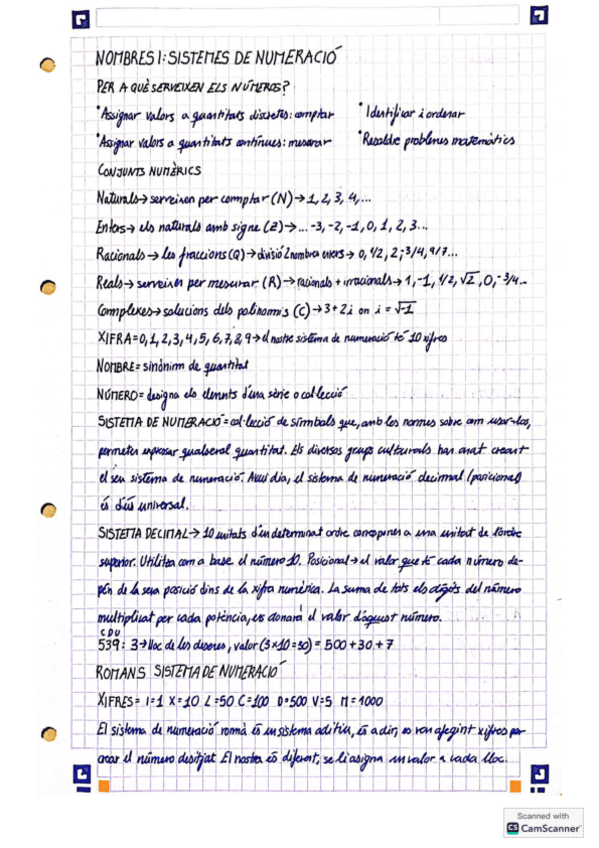 NOMBRES I: SISTEMES DE NUMERACIÓ
PER A QUÈ SERVEIXEN ELS NÚMEROS?
• Assignar valors a quantitats discretes: comptar
• Identificar i ordenar
• Assignar valors a quantitats contínues: mesurar
• Resoldre problemes matemàtics
CONJUNTS NUMÈRICS
Naturals → serveixen per comptar (N) → 1, 2, 3, 4, ...
Enters → els naturals amb signe (Z) → ... -3, -2, -1, 0, 1, 2, 3...
Racionals → les fraccions (Q) → divisió 2 nombres enters → 0, 1/2, 2, 3/4, 9/7...
Reals → serveixen per mesurar (R) → racionals + irracionals → 1, -1, 1/2, √2, 0, -3/4...
Complexes → solucions dels polinomis (C) → 3+2i on i = √-1
XIFRA = 0, 1, 2, 3, 4, 5, 6, 7, 8, 9 → el nostre sistema de numeració té 10 xifres
NOMBRE = sinònim de quantitat
NÚMERO = designa els elements d'una sèrie o col·lecció
SISTEMA DE NUMERACIÓ = col·lecció de símbols que, amb les normes sobre com usar-los,
permeten expressar qualsevol quantitat. Els diversos grups culturals han anat creant
el seu sistema de numeració. Avui dia, el sistema de numeració decimal (posicional)
és d'ús universal.
SISTEMA DECIMAL → 10 unitats d'un determinat ordre correspònen a una unitat de l'ordre
superior. Utilitza com a base el número 10. Posicional → el valor que té cada número de-
pèn de la seva posició dins de la xifra numèrica. La suma de tots els dígits del número
multiplicat per cada potència, ens donarà el valor d'aquest número.
C D U
539: 3 → lloc de les desenes, valor (3x10=30) = 500 + 30 + 7
ROMANS SISTEMA DE NUMERACIÓ
XIFRES = I=1 X=10 L=50 C=100 D=500 V=5 M=1000
El sistema de numeració romà és un sistema additiu, és a dir, es van afegint xifres per
crear el número desitjat. El nostre és diferent, se li assigna un valor a cada lloc.
Scanned with
CS CamScanner